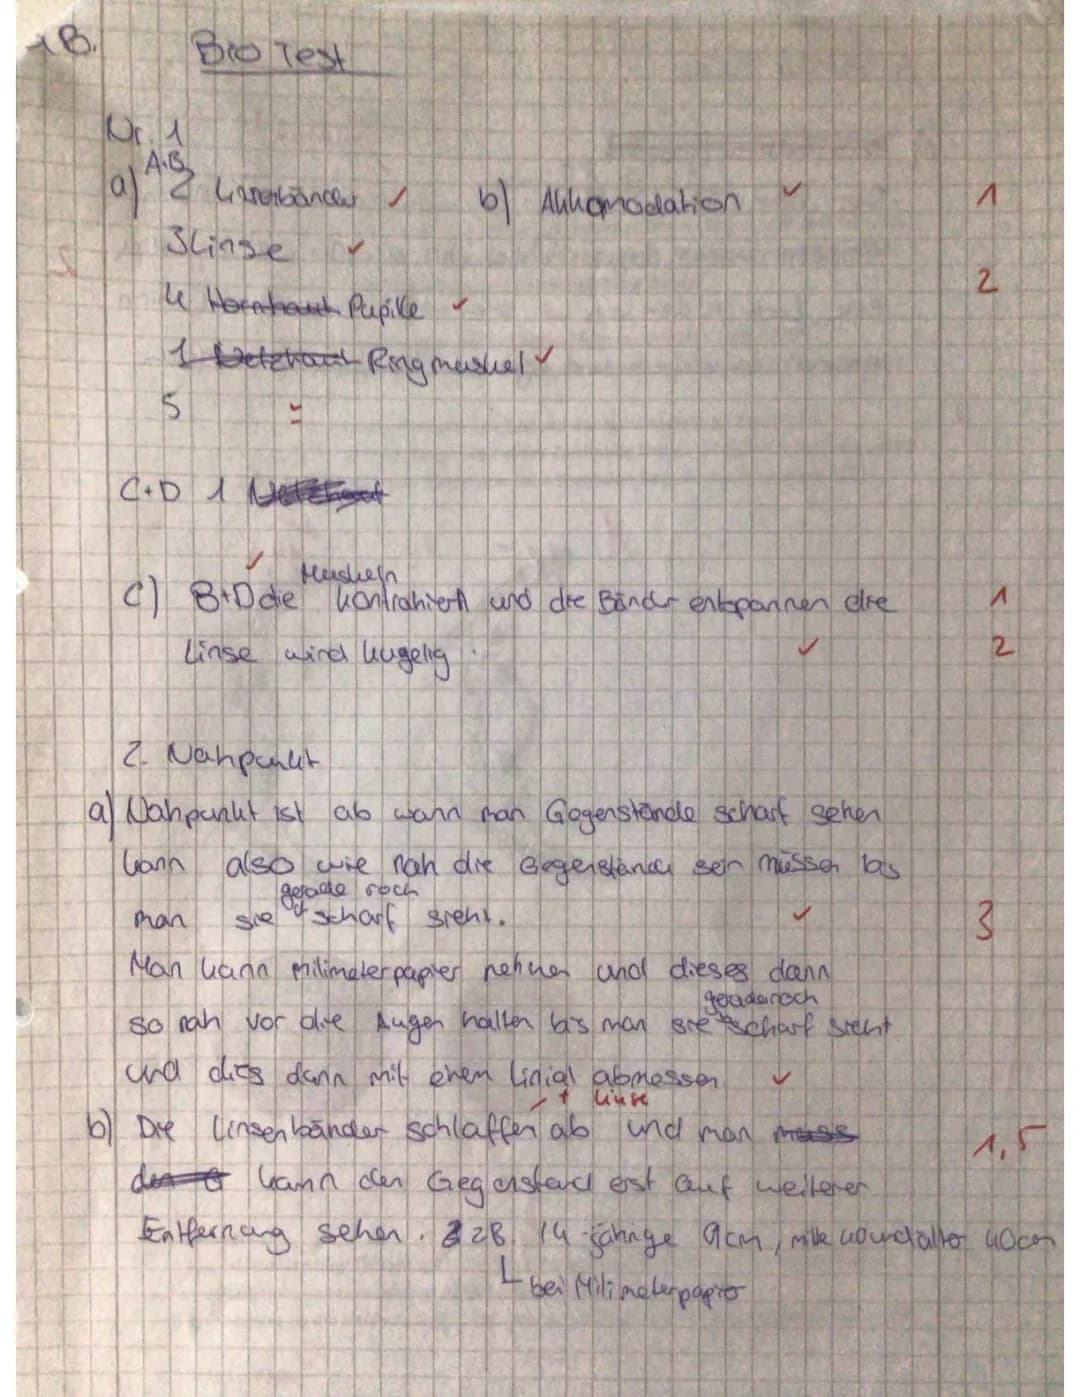 1B.
Bio Test
Nr. 1
A.B.
a) 2 Linsenbänder ✓ b) Akkomodation ✓ 1
3 Linse ✓
2
4 Hornhaut Pupille ✓
1 Netzhaut Ringmuskel ✓
5
C+D 1 Netzhaut
Muskeln
c) B+D die kontrahiert und die Bänder entspannen die 1
Linse wird kugelig. ✓ 2
2. Nahpunkt
a) Nahpunkt ist ab wann man Gegenstände scharf sehen
kann also wie nah die Gegenstände sein müssen bis
gerade noch
man sie scharf sieht. ✓ 3
Man kann milimeterpapier nehmen und dieses dann
gerade noch
so nah vor die Augen halten bis man sie scharf sieht
und dies dann mit einem Linial abmessen ✓
+ Linse
b) Die Linsenbänder schlaffen ab und man muss 1,5
kann den Gegenstand erst auf weiterer
Entfernung sehen. zB 14-jährige 9cm, mitte 40 und älter 40cm
bei Milimeterpapier